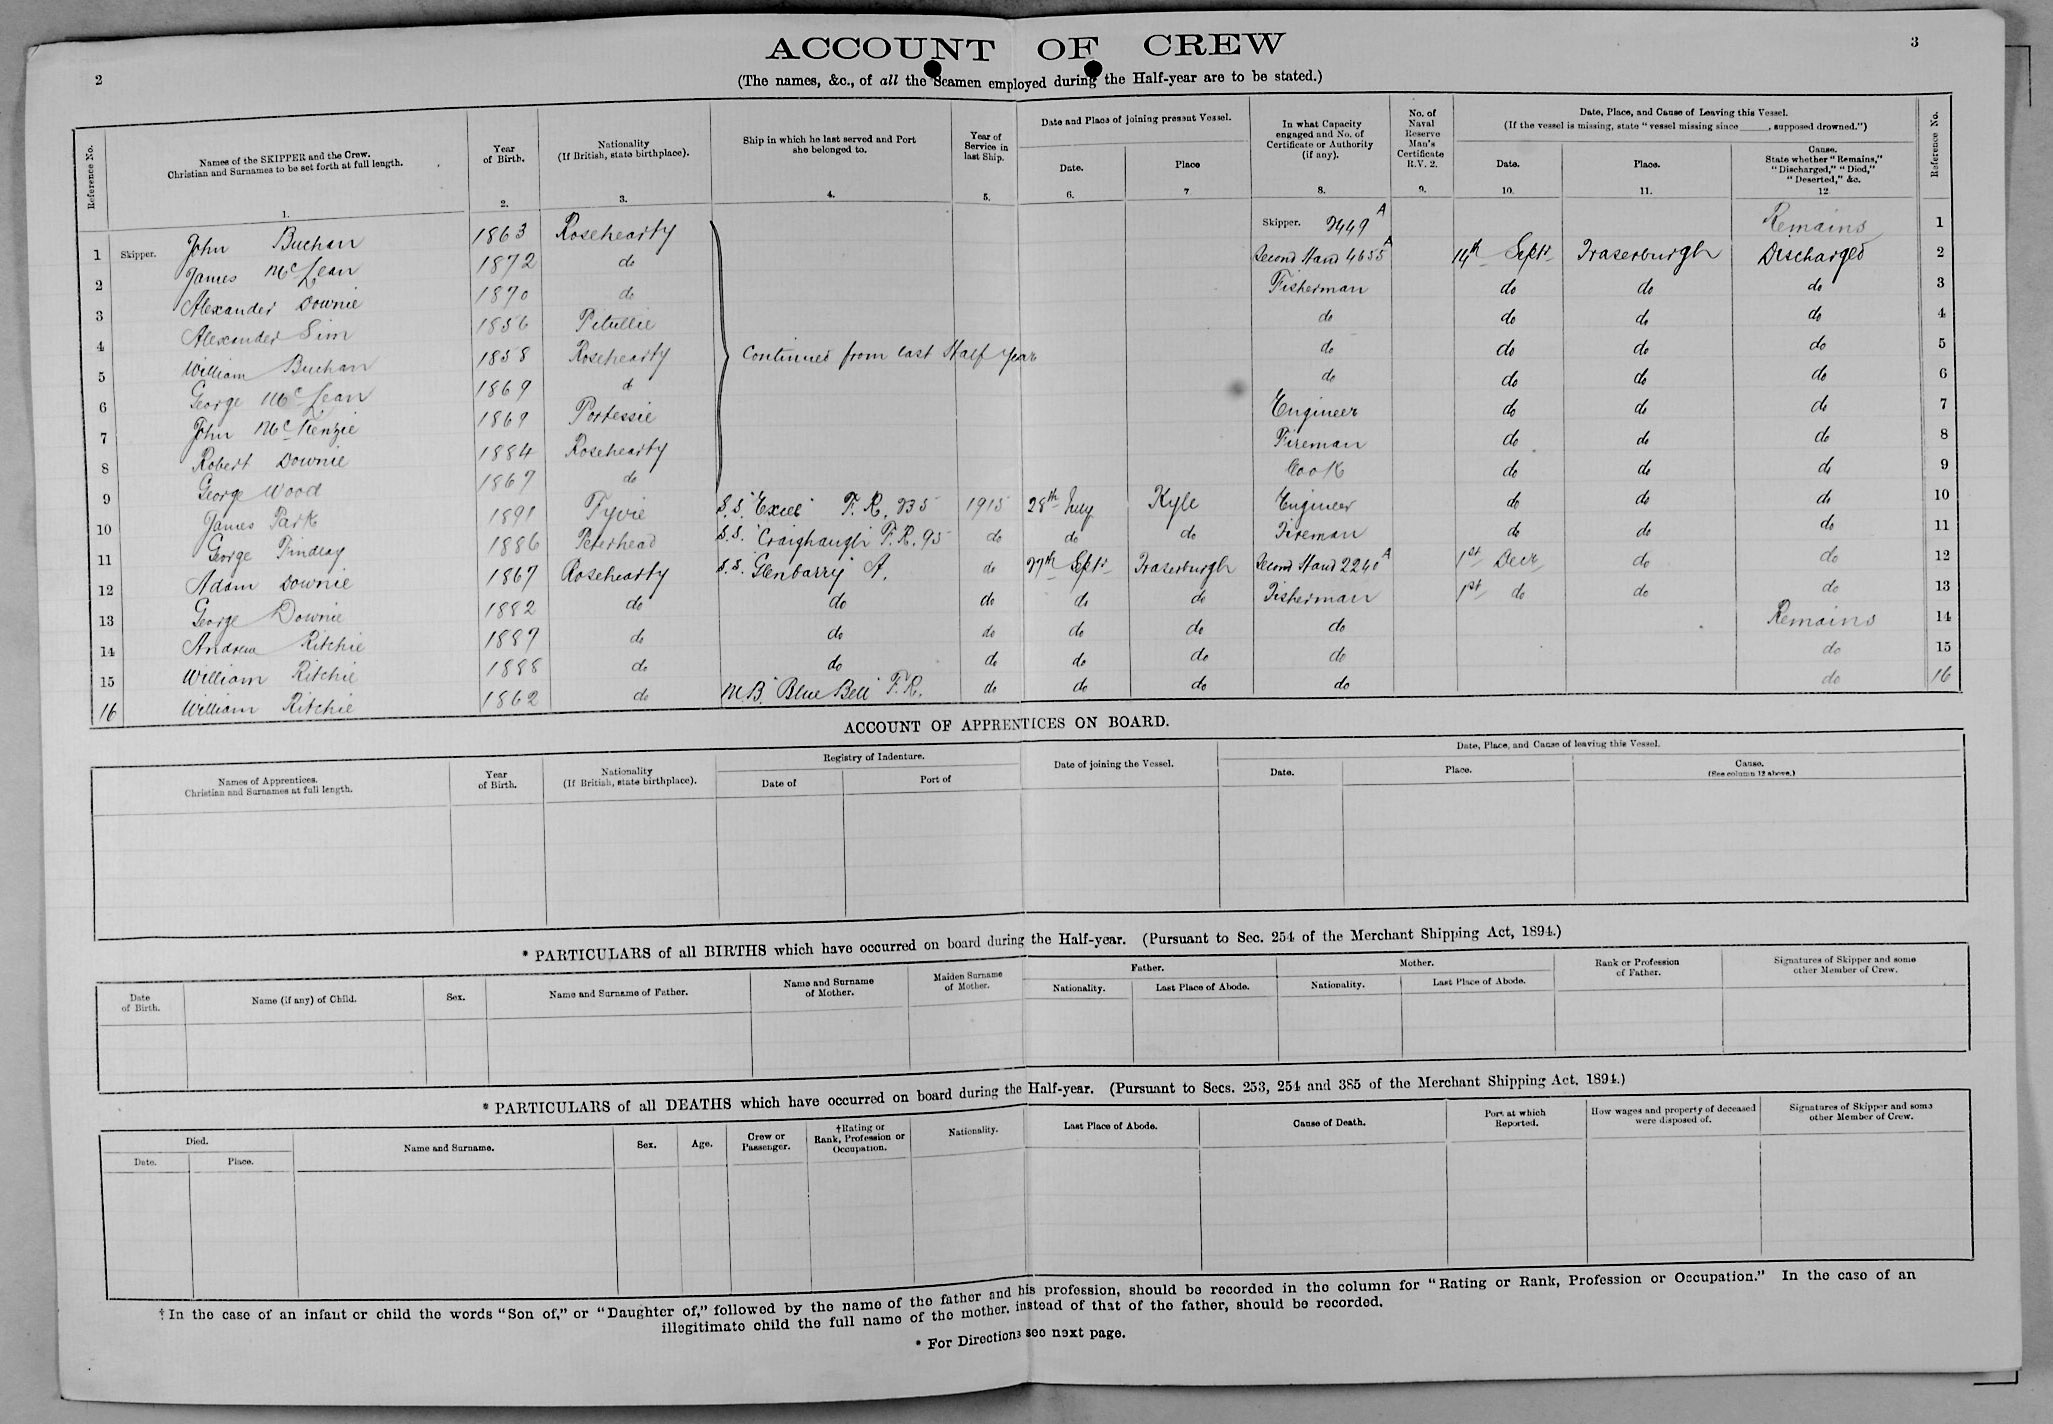 2
ACCOUNT OF CREW
3
(The names, &c., of all the Seamen employed during the Half-year are to be stated.)
Reference No.
Names of the SKIPPER and the Crew.
Christian and Surnames to be set forth at full length.
1.
Year
of Birth.
2.
Nationality
(If British, state birthplace).
3.
Ship in which he last served and Port
she belonged to.
4.
Year of
Service in
last Ship.
5.
Date and Place of joining present Vessel.
Date.
6.
Place
7
In what Capacity
engaged and No. of
Certificate or Authority
(if any).
8.
No. of
Naval
Reserve
Man's
Certificate
R.V. 2.
9.
Date, Place, and Cause of Leaving this Vessel.
(If the vessel is missing, state "vessel missing since ____, supposed drowned.")
Date.
10.
Place.
11.
Cause.
State whether "Remains,"
"Discharged," "Died,"
"Deserted," &c.
12
Reference No.
1 Skipper. John Buchan 1863 Rosehearty Skipper. 9449 A Remains 1
2 James McLean 1872 do Second Hand 4655 A 14th Sept Fraserburgh Discharged 2
3 Alexander Downie 1870 do Fisherman do do do 3
4 Alexander Sim 1856 Pitullie do do do do 4
5 William Buchan 1858 Rosehearty Continued from last Half Year do do do do 5
6 George McLean 1869 d do do do do 6
7 John McKenzie 1869 Portessie Engineer do do do 7
8 Robert Downie 1884 Rosehearty Fireman do do do 8
9 George Wood 1867 do Cook do do do 9
10 James Park 1891 Fyvie S.S. "Excel" F.R. 935 1915 28th July Kyle Engineer do do do 10
11 George Findlay 1886 Peterhead S.S. "Craighaugh" F.R. 95 do do do Fireman do do do 11
12 Adam Downie 1867 Rosehearty S.S. "Glenbarry" A. do 27th Sept Fraserburgh Second Hand 2240 A 1st Decr do do 12
13 George Downie 1882 do do do do do Fisherman 1st do do do 13
14 Andrew Ritchie 1887 do do do do do do Remains 14
15 William Ritchie 1888 do do do do do do do 15
16 William Ritchie 1862 do M.B. "Blue Bell" F.R. do do do do do 16
ACCOUNT OF APPRENTICES ON BOARD.
Names of Apprentices.
Christian and Surnames at full length.
Year
of Birth.
Nationality
(If British, state birthplace).
Registry of Indenture.
Date of
Port of
Date of joining the Vessel.
Date, Place, and Cause of leaving this Vessel.
Date.
Place.
Cause.
(See column 12 above.)
* PARTICULARS of all BIRTHS which have occurred on board during the Half-year. (Pursuant to Sec. 254 of the Merchant Shipping Act, 1894.)
Date
of Birth.
Name (if any) of Child.
Sex.
Name and Surname of Father.
Name and Surname
of Mother.
Maiden Surname
of Mother.
Father.
Nationality.
Last Place of Abode.
Mother.
Nationality.
Last Place of Abode.
Rank or Profession
of Father.
Signatures of Skipper and some
other Member of Crew.
* PARTICULARS of all DEATHS which have occurred on board during the Half-year. (Pursuant to Secs. 253, 254 and 385 of the Merchant Shipping Act, 1894.)
Died.
Date.
Place.
Name and Surname.
Sex.
Age.
Crew or
Passenger.
†Rating or
Rank, Profession or
Occupation.
Nationality.
Last Place of Abode.
Cause of Death.
Port at which
Reported.
How wages and property of deceased
were disposed of.
Signatures of Skipper and some
other Member of Crew.
†In the case of an infant or child the words "Son of," or "Daughter of," followed by the name of the father and his profession, should be recorded in the column for "Rating or Rank, Profession or Occupation." In the case of an
illegitimate child the full name of the mother, instead of that of the father, should be recorded.
* For Directions see next page.